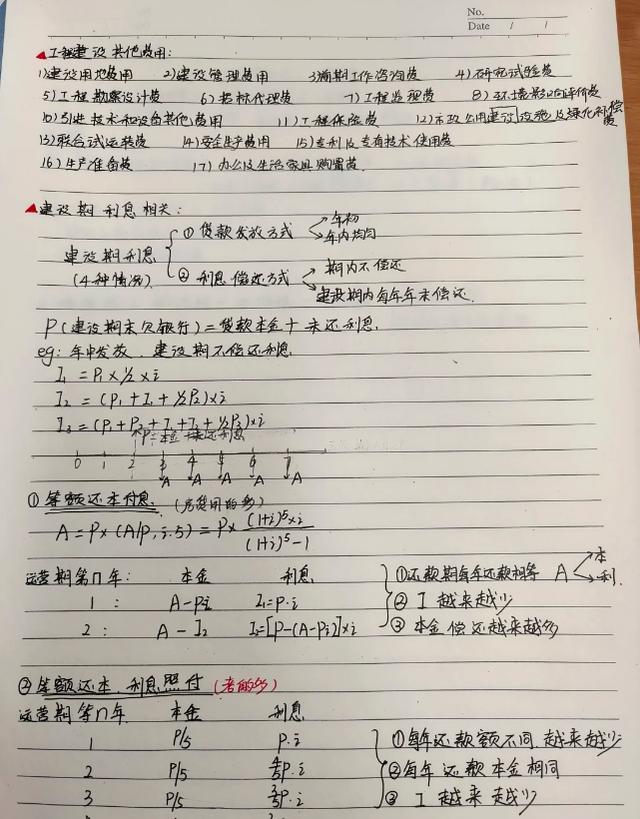 No.
Date / /
工程建设其他费用:
1)建设用地费用 2)建设管理费用 3)前期工作咨询费 4)研究试验费
5)工程勘察设计费 6)招标代理费 7)工程监理费 8)环境影响评价费
10)引进技术和设备其他费用 11)工程保险费 12)市政公用建设设施及绿化补偿费
13)联合试运转费 14)安全生产费用 15)专利及专有技术使用费
16)生产准备费 17)办公及生活家具购置费.
建设期利息相关:
建设期利息
(4种情况)
①贷款发放方式
年初
年内均匀
②利息偿还方式
期内不偿还
建设期内每年年末偿还.
P(建设期末欠银行)=贷款本金+未还利息.
eg: 年中发放. 建设期不偿还利息.
I₁ = P₁×½×i
I₂ = (P₁+I₁+½P₂)×i
I₃ = (P₁+P₂+I₁+I₂+½P₃)×i
P=本金+未还利息
0 1 2 3 4 5 6 7
A A A A A
①等额还本付息. (房贷用的多)
A = P×(A/P, i, 5) = P× (1+i)⁵×i / (1+i)⁵-1
运营期第n年: 本金 利息
1: A-Pi I₁=P·i
2: A-I₂ I₂=[P-(A-Pi)]×i
①还款期每年还款相等 A 本 利.
②I越来越少
③本金偿还越来越多
②等额还本.利息照付 (考的多)
运营期第n年 本金 利息
1 P/5 P·i
2 P/5 ⅘P·i
3 P/5 ⅗P·i
①每年还款额不同.越来越少
②每年还款本金相同
③I越来越少